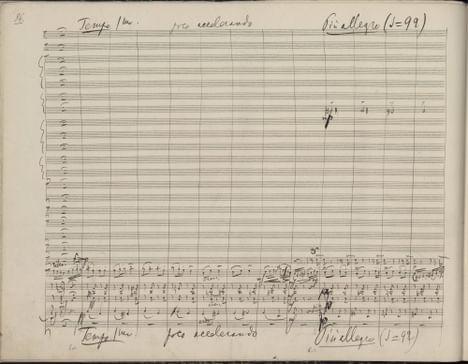 Tempo I mo. poco accelerando Più allegro (♩=92)
Tempo I mo. poco accelerando Più allegro (♩=92)